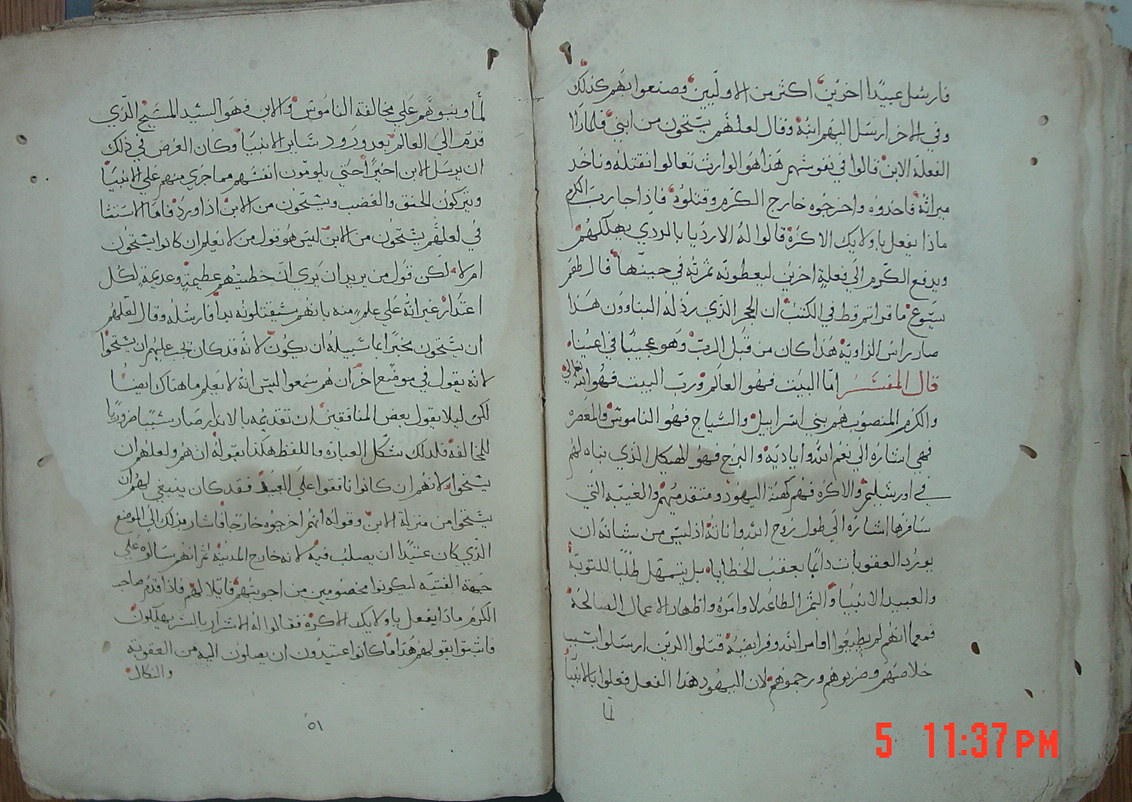 فارسل عبيدًا اخرين اكثر من الاولين وصنعوا بهم كذلك
وفي الاخر ارسل اليهم ابنه وقال لعلهم يستحون من ابني فلما راا
الفعلة الابن قالوا في نفوسهم هذا هو الوارث تعالوا نقتله وناخد
ميراثه فاخدوه واخرجوه خارج الكرم وقتلوه فاذا جا رب الكرم
ماذا يفعل باولايك الاكرة قالوا له الارديا بالردي يهلكهم
ويدفع الكرم الي فعلة اخرين ليعطونه ثمرته في حينها قال لهم
يسوع ما قراتم قط في الكتب ان الحجر الذي رذله البناوون هذا
صار راس الزاوية هذا كان من قبل الرب وهو عجيبًا في اعيننا
قال المفسر اما البيت فهو العالم ورب البيت فهو الله تعالي
والكرم المنصوب هم بني اسراييل والسياج فهو الناموس والمعصره
فهي اشاره الي نعم الله واياديه والبرج فهو الهيكل الذي بناه لهم
في اورشليم والاكره فهم كهنة اليهود ومتقدميهم والغيبه التي
سافرها اشاره الي طول روح الله واناته اذ ليس من شانه ان
يورد العقوبات دايمًا بعقب الخطايا بل يتمهل طلبًا للتوبة
والعبيد الانبيا والثمر الطاعه لاوامره واظهار الاعمال الصالحة
فمع انهم لم يطيعوا اوامر الله وفرايضه قتلوا الذين ارسلوا بسبب
خلاصهم وضربوهم ورجموهم لان اليهود هذا الفعل فعلوا بالانبيا
لما
لما وبخوهم علي مخالفة الناموس والابن فهو السيد المسيح الذي
قدم الي العالم بعد ورود ساير الانبيا وكان الغرض في ذلك
ان يرسل الابن اخيرًا حتي يلومون انفسهم مما جري منهم علي الانبيا
ويتركون الحنق والغضب ويستحون من الابن اذا ورد فاما الاستثنا
في لعلهم يستحون من الابن ليس هو قول من لا يعلم ان كانوا يستحون
ام لا لكن قول من يريد ان يري ان خطيتهم عظيمة وعديمة لكل
اعتذار غير انه علي علم منه بانهم سيقتلونه بدا فارسله وقال لعلهم
ان يستحون مخبرًا بما سبيله ان يكون لانه قد كان يجب عليهم ان يستحوا
لانه يقول في موضع اخر ان هم سمعوا اليس انه لا يعلم ما هناك ايضًا
لكن ليلا يقول بعض المنافقين ان تقدمه بالانذار صار سببًا ضروريًا
للمخالفة فلذلك شكل العبارة واللفظ هكذا بقوله ان هم ولعلهم ان
يستحوا لانهم ان كانوا نافقوا علي العبيد فقد كان ينبغي لهم ان
يستحوا من منزلة الابن وقوله انهم اخرجوه خارجًا فاشار بذلك الي الموضع
الذي كان عتيدًا ان يصلب فيه لانه خارج المدينه ثم انهم سالوه علي
جهة الفتيه ليكونوا مخصومين من اجوبتهم قايلا لهم فاذا قدم صاحب
الكرم ماذا يفعل باولايك الاكرة فقالوا له الاشرار بالشر يهلكون
فاستوا بقولهم هذا ما كانوا عتيدون ان يصلون اليه من العقوبة
والنكال
٥١
5 11:37 PM